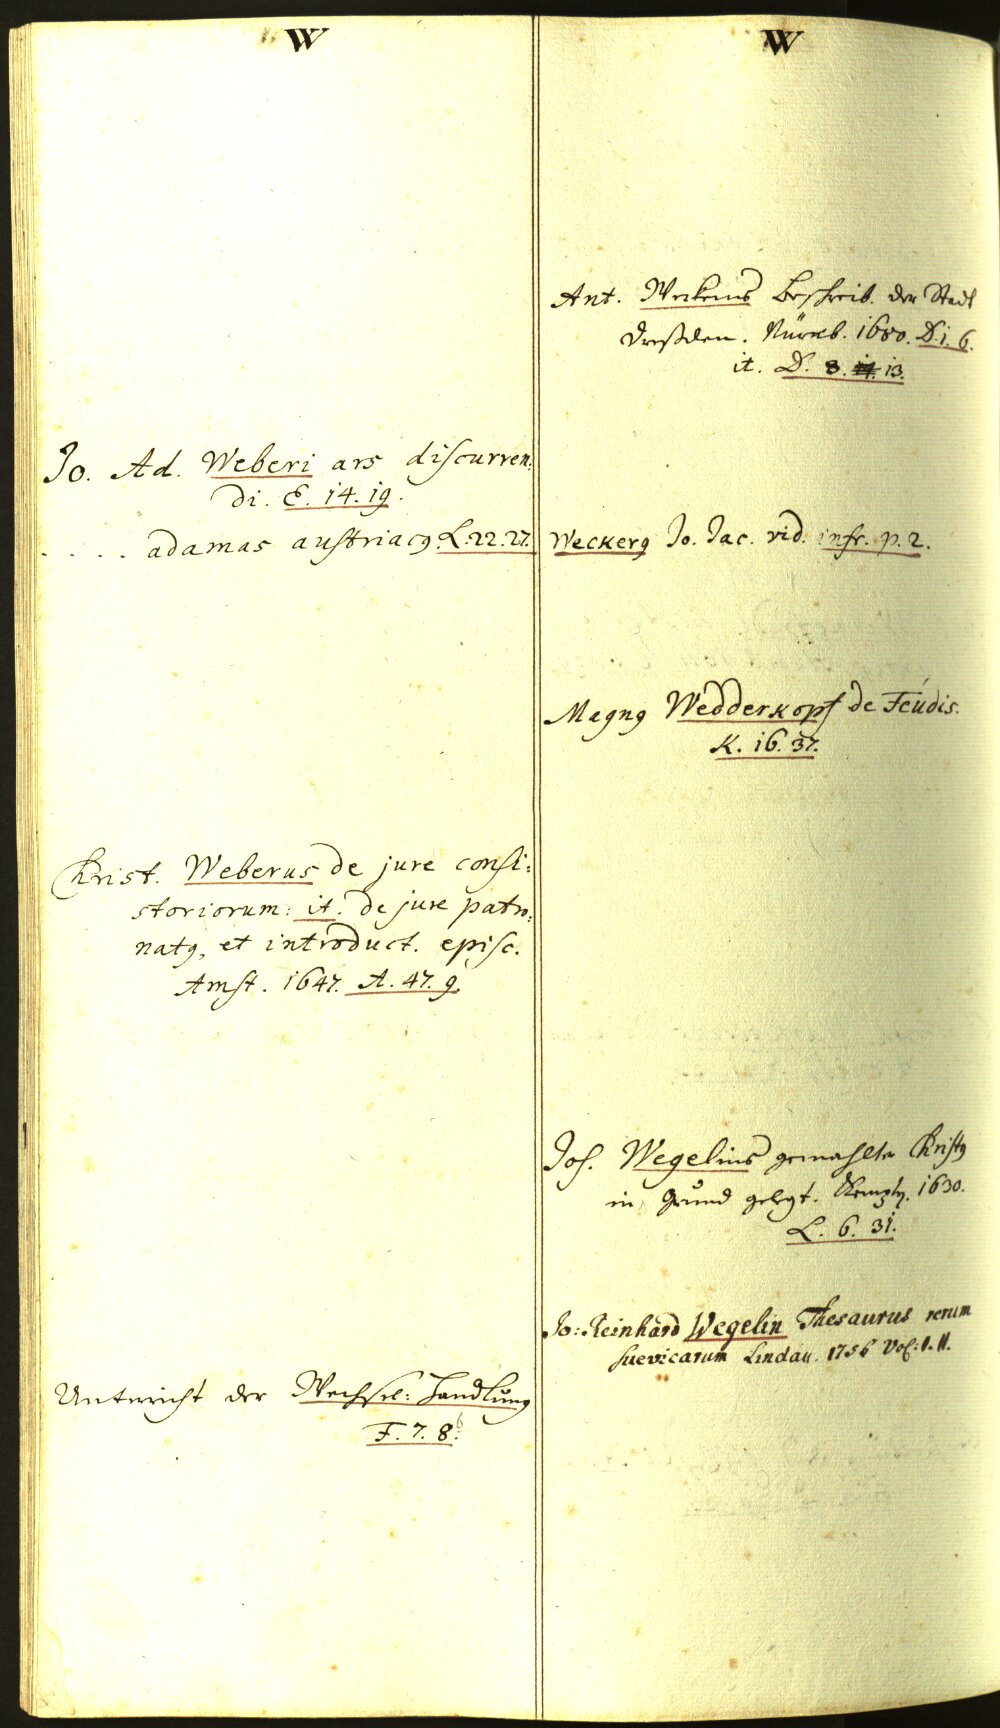 W
Jo. Ad. Weberi ars discurren:
di. E. 14. 19.
. . . . adamas austriacq. L. 22. 27.
Christ. Weberus de jure consi:
storiorum: it. de jure patro:
natq, et introduct. episc.
Amst. 1647. A. 47. 9.
Unterricht der Wechsel: Handlung
F. 7. 8.
W
Ant. Weckens Beschreib. der Stadt
Dreßden. Nürnb. 1680. D. 1. 6.
it. D. 8. 13.
Weckerq Jo. Jac. vid. infr. p. 2.
Magnq Wedderkopf de Feudis.
K. 16. 37.
Jos. Wegelins gemahlte Christq
in Grund gelegt. 1630.
L. 6. 31.
Jo: Reinhard Wegelin Thesaurus rerum
suevicarum Lindau. 1756 Vol: I. II.